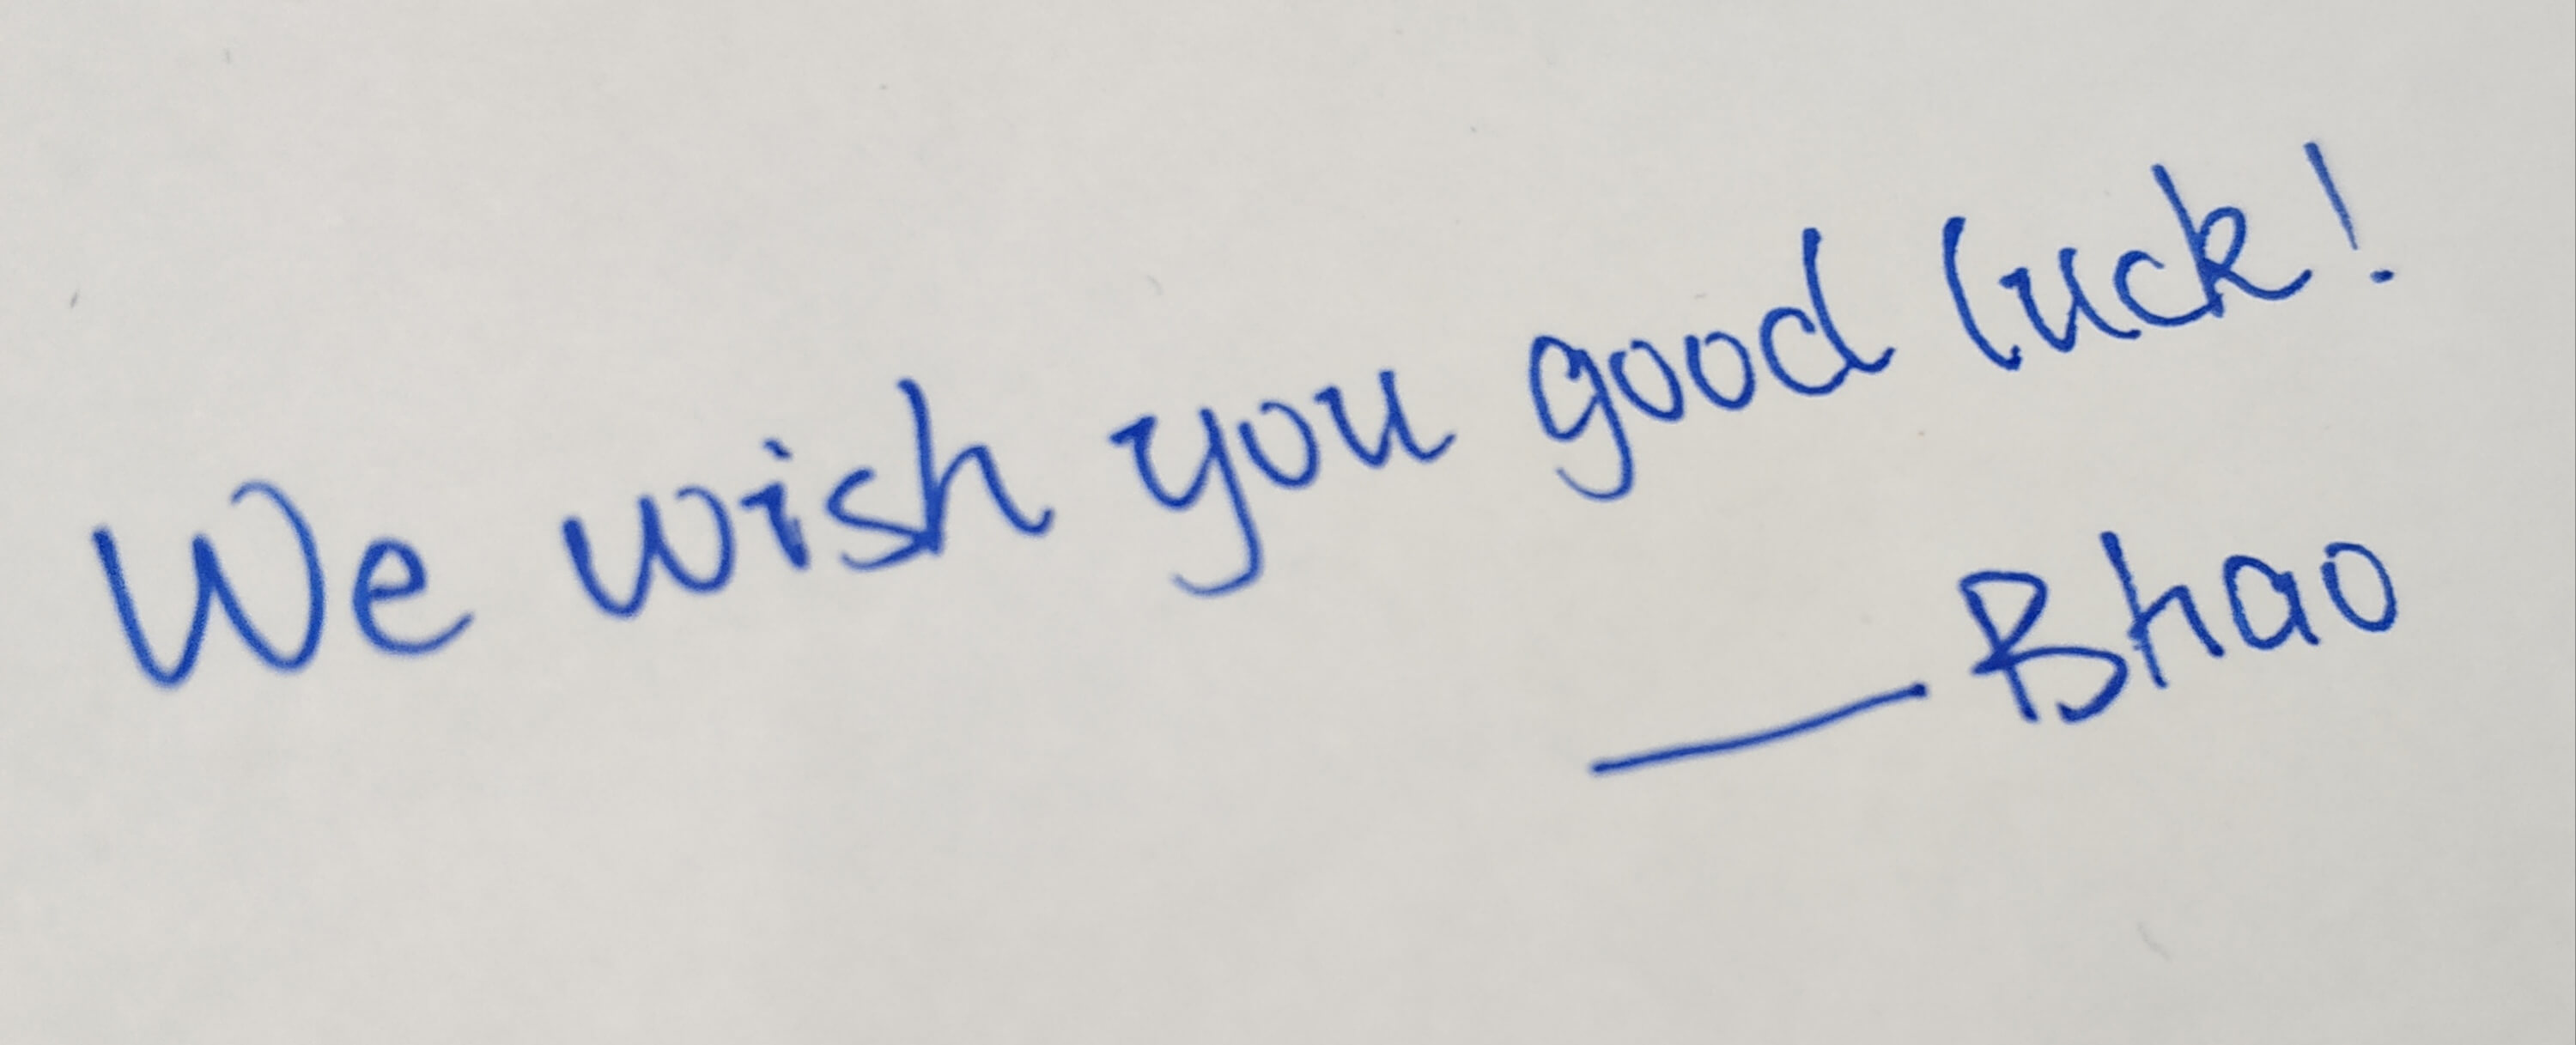 We wish you good luck!
— Bhao